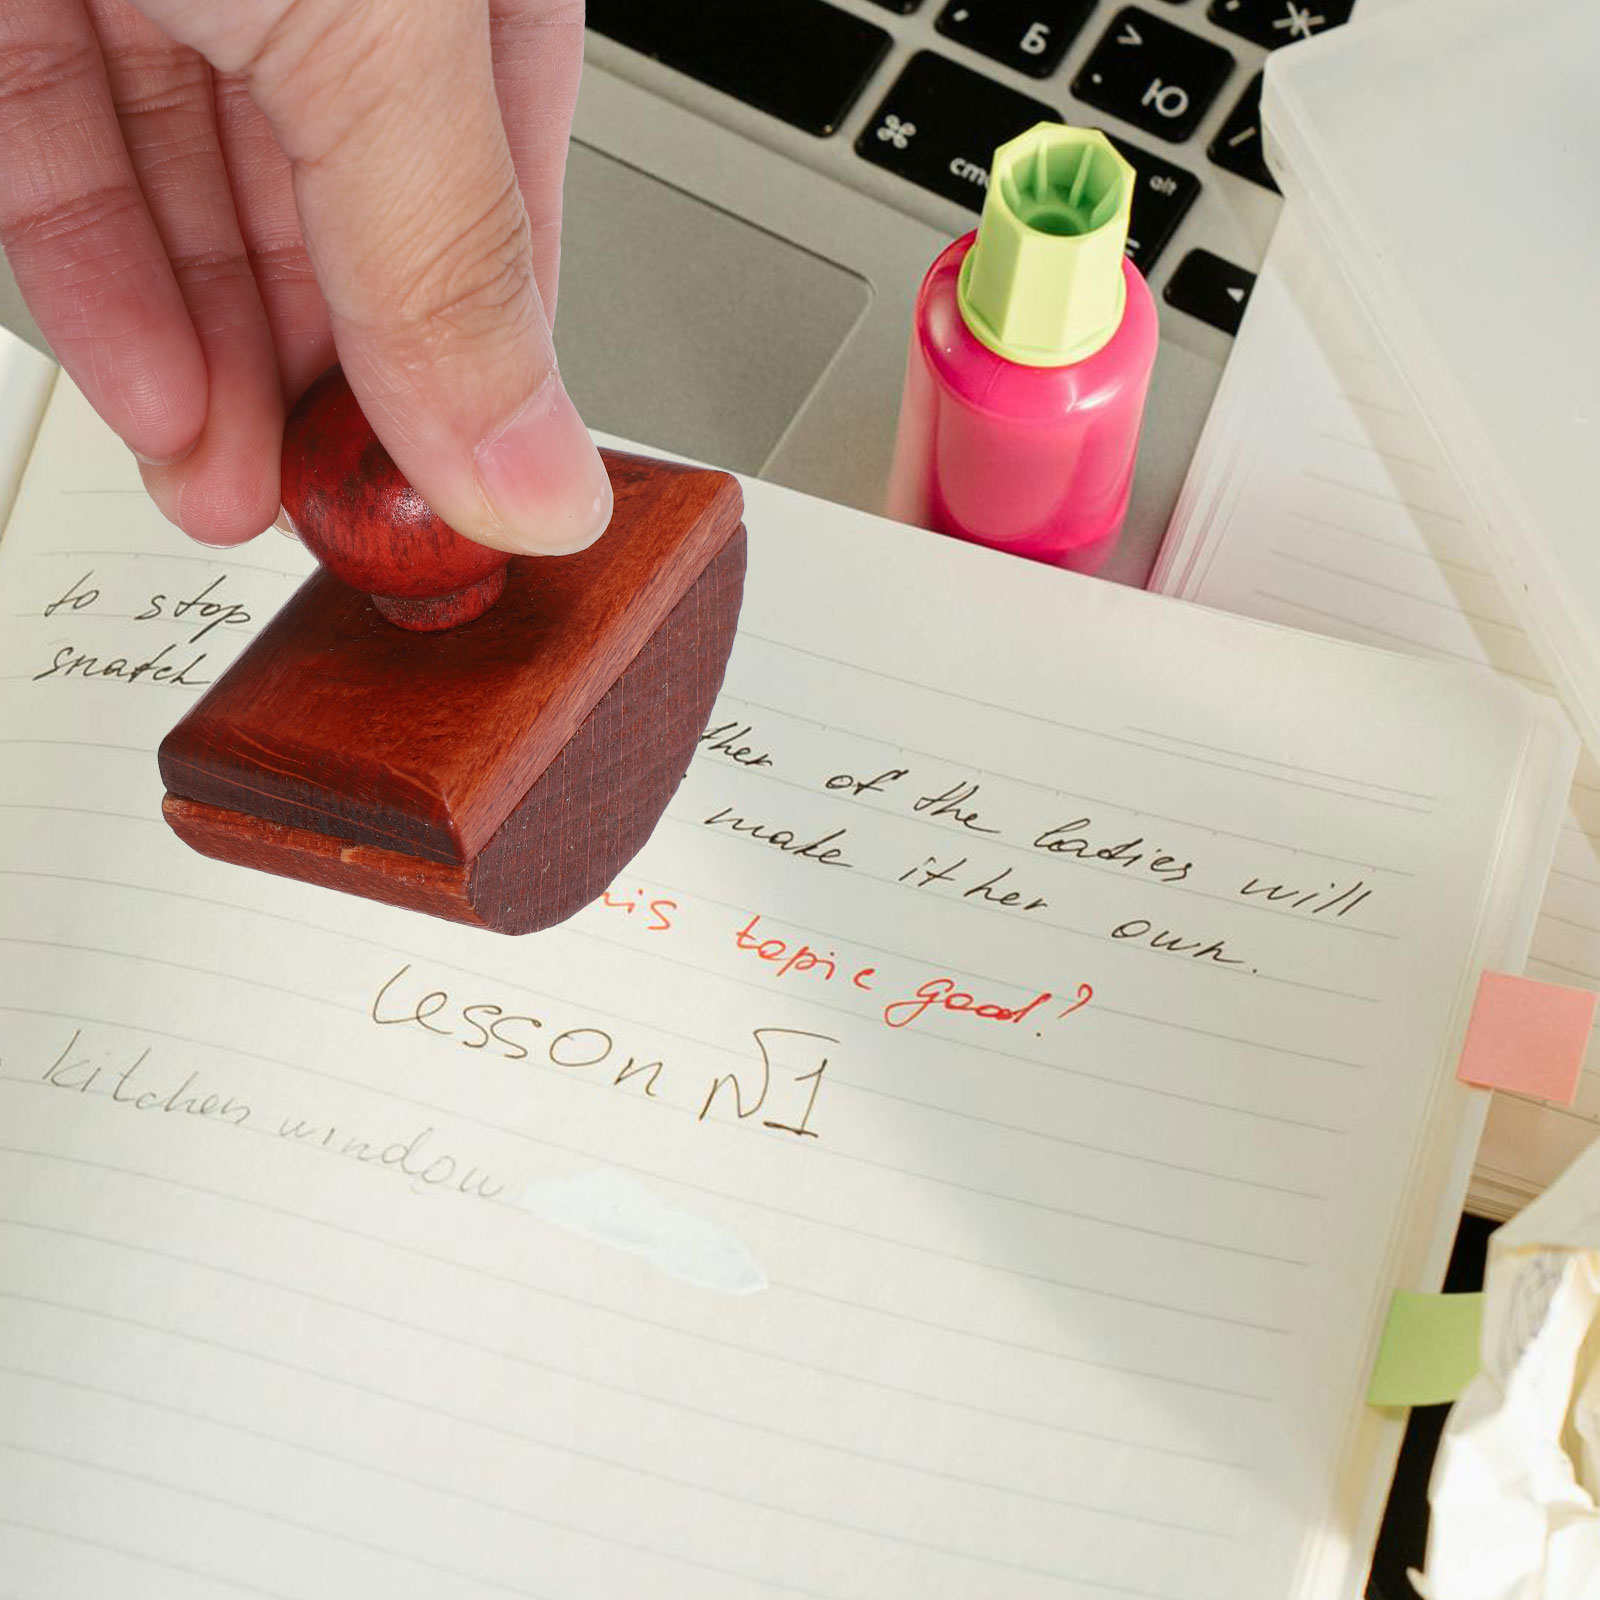 Б
Ж
>
.
Ю
⌘
cm
alt
/
to stop
snatch
ther of the ladies will
make it her own.
his topic good?
Lesson №1
kitchen window